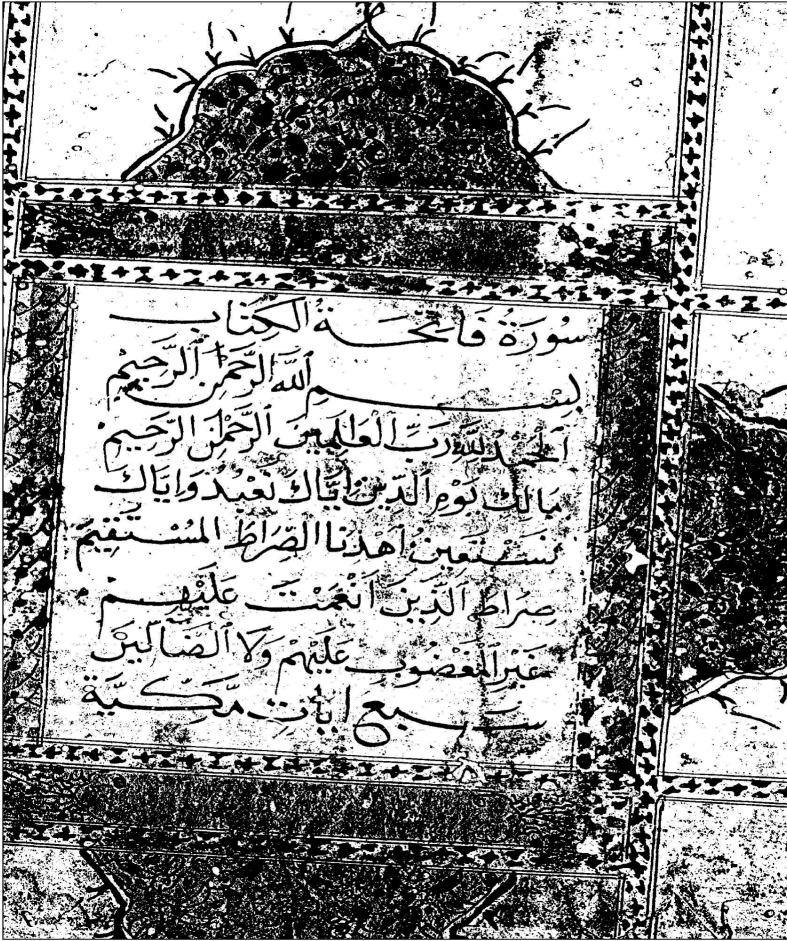 سُورَةُ فَاتِحَةُ الْكِتَاب
بِسْمِ ٱللَّهِ ٱلرَّحْمَنِ ٱلرَّحِيمِ
ٱلْحَمْدُ لِلَّهِ رَبِّ ٱلْعَالَمِينَ ٱلرَّحْمَنِ ٱلرَّحِيمِ
مَالِكِ يَوْمِ ٱلدِّينِ إِيَّاكَ نَعْبُدُ وَإِيَّاكَ
نَسْتَعِينُ ٱهْدِنَا ٱلصِّرَاطَ ٱلْمُسْتَقِيمَ
صِرَاطَ ٱلَّذِينَ أَنْعَمْتَ عَلَيْهِمْ
غَيْرِ ٱلْمَغْضُوبِ عَلَيْهِمْ وَلَا ٱلضَّالِّينَ
سَبْعُ ايَاتٍ مَّكِّيَّة